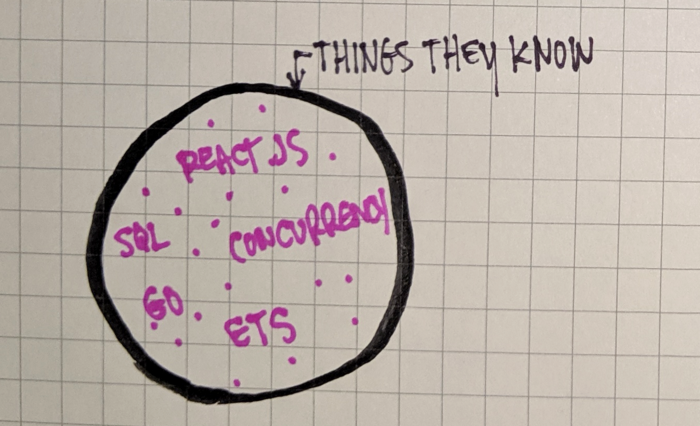 THINGS THEY KNOW
REACT JS
SQL
CONCURRENCY
GO
ETS